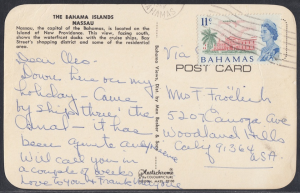 THE BAHAMA ISLANDS
NASSAU
Nassau, the capital of the Bahamas, is located on the
Island of New Providence. This view, facing south,
shows the waterfront docks with the cruise ships, Bay
Street's shopping district and some of the residential
area.
Dear Cleo-
Down here on my
holiday - Came
by ship thru the
Canal - it has
been quite
Will call you in
a couple of weeks
Love to you & Frank
NASSAU
BAHAMAS
11
BAHAMAS
Via
POST CARD
Mrs F Froelich
5207
Woodland Hills
Calif 91364
U.S.A.
Plastichrome